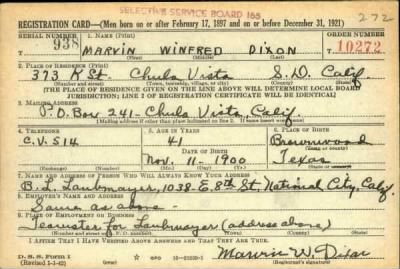 SELECTIVE SERVICE BOARD 165
REGISTRATION CARD—(Men born on or after February 17, 1897 and on or before December 31, 1921)
272
SERIAL NUMBER 1. NAME (Print) ORDER NUMBER
938 MARVIN WINFRED DIXON 10272
(First) (Middle) (Last)
2. PLACE OF RESIDENCE (Print)
373 K St. Chula Vista S.D. Calif.
(Number and street) (Town, township, village, or city) (County) (State)
[THE PLACE OF RESIDENCE GIVEN ON THE LINE ABOVE WILL DETERMINE LOCAL BOARD
JURISDICTION; LINE 2 OF REGISTRATION CERTIFICATE WILL BE IDENTICAL]
3. MAILING ADDRESS
P.O. Box 241 - Chula Vista, Calif.
[Mailing address if other than place indicated on line 2. If same insert word same]
4. TELEPHONE 5. AGE IN YEARS 6. PLACE OF BIRTH
C.V. 514 41 Brownwood
DATE OF BIRTH (Town or county)
Nov. 11 - 1900 Texas
(Exchange) (Number) (Mo.) (Day) (Yr.) (State or country)
7. NAME AND ADDRESS OF PERSON WHO WILL ALWAYS KNOW YOUR ADDRESS
B. L. Laubmayer, 1038 - E. 8th St, National City, Calif.
8. EMPLOYER'S NAME AND ADDRESS
Same as above -
9. PLACE OF EMPLOYMENT OR BUSINESS
Teamster for Laubmayer (address above)
(Number and street or R. F. D. number) (Town) (County) (State)
I AFFIRM THAT I HAVE VERIFIED ABOVE ANSWERS AND THAT THEY ARE TRUE.
D. S. S. Form 1 GPO Marvin W Dixon
(Revised 1-1-42) (Registrant's signature)